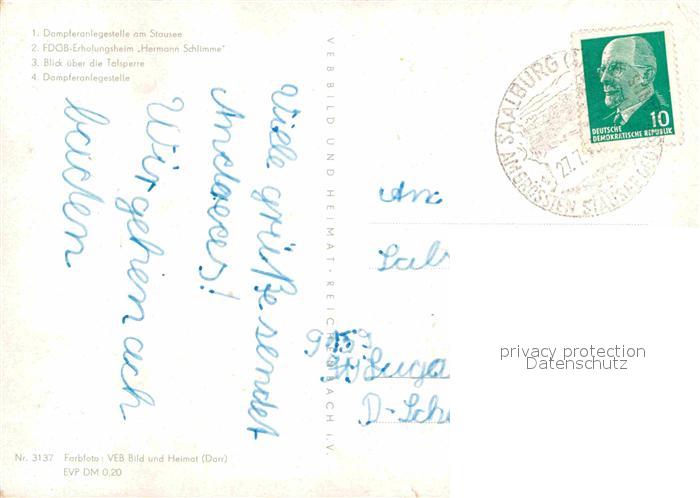 1. Dampferanlegestelle am Stausee
2. FDGB-Erholungsheim „Hermann Schlimme"
3. Blick über die Talsperre
4. Dampferanlegestelle
VEB BILD UND HEIMAT · REICHENBACH I. V.
Viele grüße sendet
Andreas!
Wir gehen auch
baden
SAALBURG
AM GRÖSSTEN STAUSEE
27.7.
10
DEUTSCHE
DEMOKRATISCHE REPUBLIK
An
Luga
D-Sch
privacy protection
Datenschutz
Nr. 3137 Farbfoto: VEB Bild und Heimat (Darr)
EVP DM 0,20